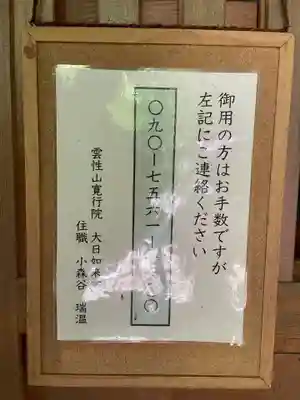 御用の方はお手数ですが
左記にご連絡ください
〇九〇ー七五六一ー
雲性山寛行院 大日如来
住職 小森谷 瑞温